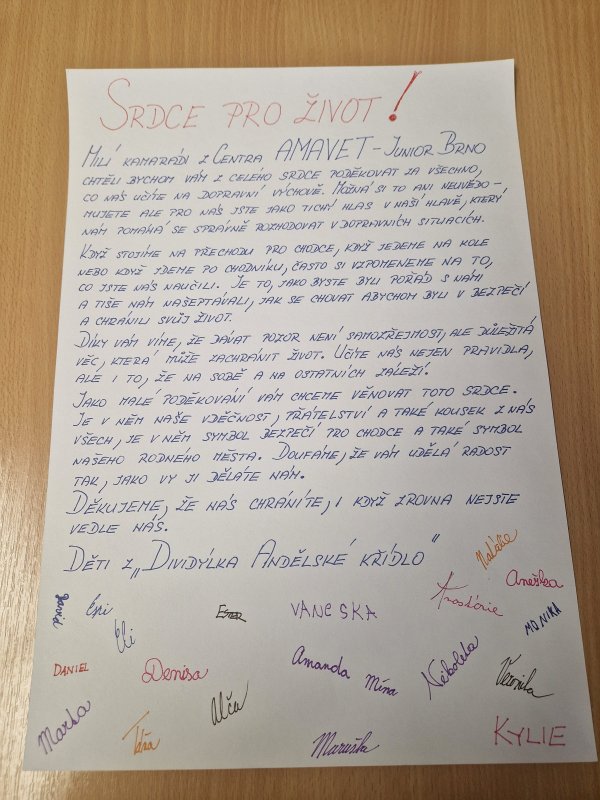 SRDCE PRO ŽIVOT!
MILÍ KAMARÁDI Z CENTRA AMAVET-JUNIOR BRNO
CHTĚLI BYCHOM VÁM Z CELÉHO SRDCE PODĚKOVAT ZA VŠECHNO,
CO NÁS UČÍTE NA DOPRAVNÍ VÝCHOVĚ. MOŽNÁ SI TO ANI NEUVĚDO-
MUJETE ALE PRO NÁS JSTE JAKO TICHÝ HLAS V NAŠÍ HLAVĚ, KTERÝ
NÁM POMÁHÁ SE SPRÁVNĚ ROZHODOVAT V DOPRAVNÍCH SITUACÍCH.
KDYŽ STOJÍME NA PŘECHODU PRO CHODCE, KDYŽ JEDEME NA KOLE
NEBO KDYŽ JDEME PO CHODNÍKU, ČASTO SI VZPOMENEME NA TO,
CO JSTE NÁS NAUČILI. JE TO, JAKO BYSTE BYLI POŘÁD S NÁMI
A TIŠE NÁM NAŠEPTÁVALI, JAK SE CHOVAT ABYCHOM BYLI V BEZPEČÍ
A CHRÁNILI SVŮJ ŽIVOT.
DÍKY VÁM VÍME, ŽE DÁVAT POZOR NENÍ SAMOZŘEJMOST, ALE DŮLEŽITÁ
VĚC, KTERÁ MŮŽE ZACHRÁNIT ŽIVOT. UČÍTE NÁS NEJEN PRAVIDLA,
ALE I TO, ŽE NA SOBĚ A NA OSTATNÍCH ZÁLEŽÍ.
JAKO MALÉ PODĚKOVÁNÍ VÁM CHCEME VĚNOVAT TOTO SRDCE.
JE V NĚM NAŠE VDĚČNOST, PŘÁTELSTVÍ A TAKÉ KOUSEK Z NÁS
VŠECH, JE V NĚM SYMBOL BEZPEČÍ PRO CHODCE A TAKÉ SYMBOL
NAŠEHO RODNÉHO MĚSTA. DOUFÁME, ŽE VÁM UDĚLÁ RADOST
TAK, JAKO VY JI DĚLÁTE NÁM.
DĚKUJEME, ŽE NÁS CHRÁNÍTE, I KDYŽ ZROVNA NEJSTE
VEDLE NÁS.
DĚTI Z „DIVIDÝLKA ANDĚLSKÉ KŘÍDLO"
Natálie
Anežka
David
Esi
ESTER
VANESKA
MONIKA
Eli
DANIEL
Denisa
Amanda
Mína
Nikoleta
Veronika
Marka
Táňa
Alča
Maruška
KYLIE